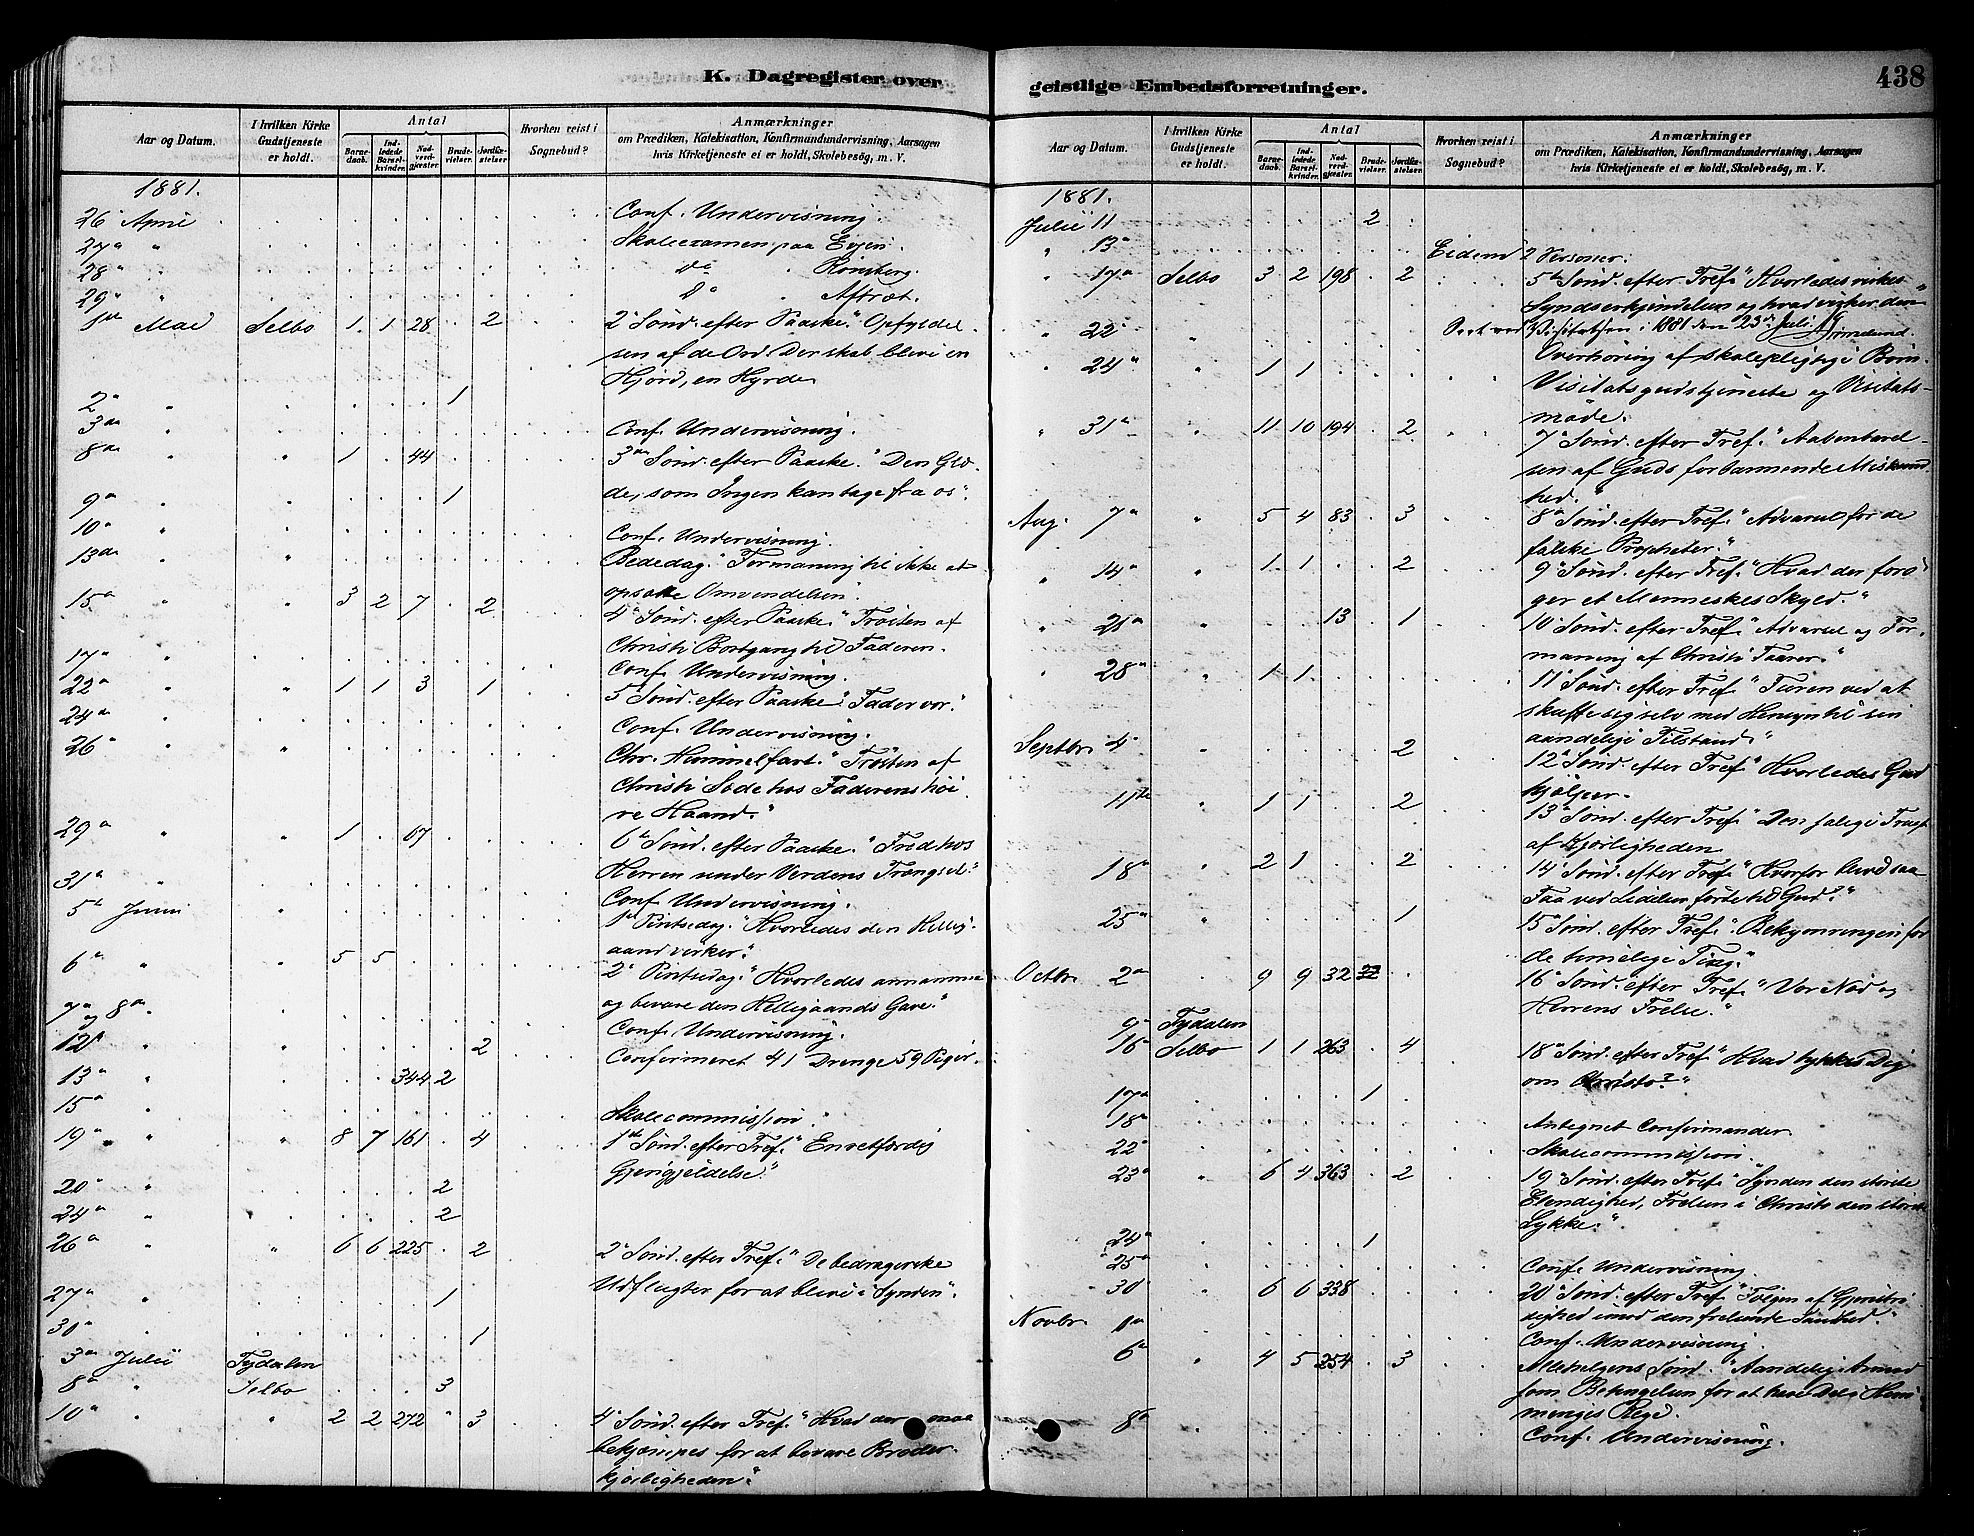 K. Dagregister over
Aar og Datum.
I hvilken Kirke Gudstjeneste er holdt.
Antal
Barnedaab.
Indledede Barselkvinder.
Nadverdgjester.
Brudevielser.
Jordfæstelser
Hvorhen reist i Sognebud?
Anmærkninger
om Prædiken, Katekisation, Konfirmandundervisning, Aarsagen
hvis Kirketjeneste ei er holdt, Skolebesøg, m. V.
1881.
26 April Conf. Undervisning.
27de " Skoleexamen paa Evjen.
28 " do " Rønsberg.
29 " do " Aftret.
1ste Mai Selbo 1 1 28 . 2 2 Sønd. efter Paaske. "Opfyldel
sen af de Ord. Der skal blive en
Hjord, en Hyrde
2 " 1
3die " Conf. Undervisning.
8de " " 1 . 44 3die Sønd. efter Paaske. "Den Glæ
de, som Ingen kan tage fra os".
9 " " 1
10 " " Conf. Undervisning.
13de " " Bededag. "Formaning til ikke at
opsætte Omvendelsen.
15 " " 3 2 7 . 2 4 Sønd. efter Paaske. "Trøsten af
Christi Bortgang til Faderen.
17 " Conf. Undervisning.
22 " " 1 1 3 . 1 5 Sønd. efter Paaske. "Fader vor."
24de " Conf. Undervisning.
26 " " Chr. Himmelfart. "Trøsten af
Christi Sæde hos Faderens høi
re Haand."
29 " " 1 . 67 6te Sønd. efter Paaske. "Fred hos
Herren under Verdens Trængsel."
31 " Conf. Undervisning.
5te Juni " 1ste Pintsedag. "Hvorledes den Hellig
aand virker".
6 " " 5 5 2 Pintsedag. "Hvorledes annamme
og bevare den Helligaands Gave."
7 og 8 Conf. Undervisning.
12 " " 2 Confirmeret 41 Drenge 59 Piger.
13 " 344 2
15 " Skolecommission.
19 " " 8 7 161 . 4 1ste Sønd. efter Tref. "En retfærdig
Gjengjældelse."
20 " 2
24 " 2
26 " " 6 6 225 . 2 2 Sønd. efter Tref. "De bedragerske
Udflugter for at blive i Synden".
27 " 1
30 " 1
3die Julii Tydalen
8 " Selbo 3
10 " " 2 2 272 " 3 4 Sønd. efter Tref. "Hvad der maa
bekjæmpes for at bevare Broder
kjærligheden."
geistlige Embedsforretninger.
438
Aar og Datum.
I hvilken Kirke Gudstjeneste er holdt.
Antal
Barnedaab.
Indledede Barselkvinder.
Nadverdgjester.
Brudevielser.
Jordfæstelser.
Hvorhen reist i Sognebud?
Anmærkninger
om Prædiken, Katekisation, Konfirmandundervisning, Aarsagen
hvis Kirketjeneste ei er holdt, Skolebesøg, m. V.
1881.
Julii 11 2
" 13 Eidem 2 Personer.
" 17 Selbo 3 2 198 . 2 5te Sønd. efter Tref. "Hvorledes virkes
Syndserkjendelsen og hvad virker den"
ved Visitatsen i 1881 den 23de Juli
" 22 " Overhøring af skolepligtige Børn
" 24 " 1 1 Visitatsgudstjeneste og Visitats-
møde.
" 31 " 11 10 194 . 2 7 Sønd. efter Tref. "Aabenbarel-
sen af Guds forbarmende Miskund
hed."
Aug. 7 " 5 4 83 . 3 8 Sønd. efter Tref. "Advarsel for de
falske Propheter."
" 14 " 1 1 . . 2 9 Sønd. efter Tref. "Hvad der forø
ger et Menneskes Skyld."
" 21 " 13 . 1 10 Sønd. efter Tref. "Advarsel og For-
maning af Christi Taarer."
" 28 " 1 1 11 Sønd. efter Tref. "Faren ved at
skuffe sig selv med Hensyn til sin
aandelige Tilstand."
Septbr 4 " 2 12 Sønd. efter Tref. "Hvorledes Gud
hjælper.
11te " 1 1 . . 2 13 Sønd. efter Tref. "Den salige Frugt
af Kjærligheden
18 " 2 1 . . 2 14 Sønd. efter Tref. "Hvorfor blive saa
Faa ved Lidelsen førte til Gud?"
25 " 1 15 Sønd. efter Tref. "Bekymringen for
de timelige Ting."
Octbr 2 " 9 9 32 16 Sønd. efter Tref. "Vor Nød og
Herrens Frelse."
9 Tydalen
16 Selbo 1 1 263 . 4 18 Sønd. efter Tref. "Hvad tykkes Dig
om Christo?"
17 1
18 Antegnet Confirmander.
22 Skolecommission.
23 " 6 4 363 . 2 19 Sønd. efter Tref. "Synden den største
Elendighed, Frelsen i Christo den største
Lykke."
24 1
25 Conf. Undervisning.
30 " 6 6 338 20 Sønd. efter Tref. "Følgen af Gjenstri
dighed imod den frelsende Sandhed."
Novbr 1 Conf. Undervisning
6 " 4 5 254 . 3 Allehelgens Sønd. "Aandelig Armod
som Betingelsen for at have Del i Him
meriges Rige.
8 Conf. Undervisning.